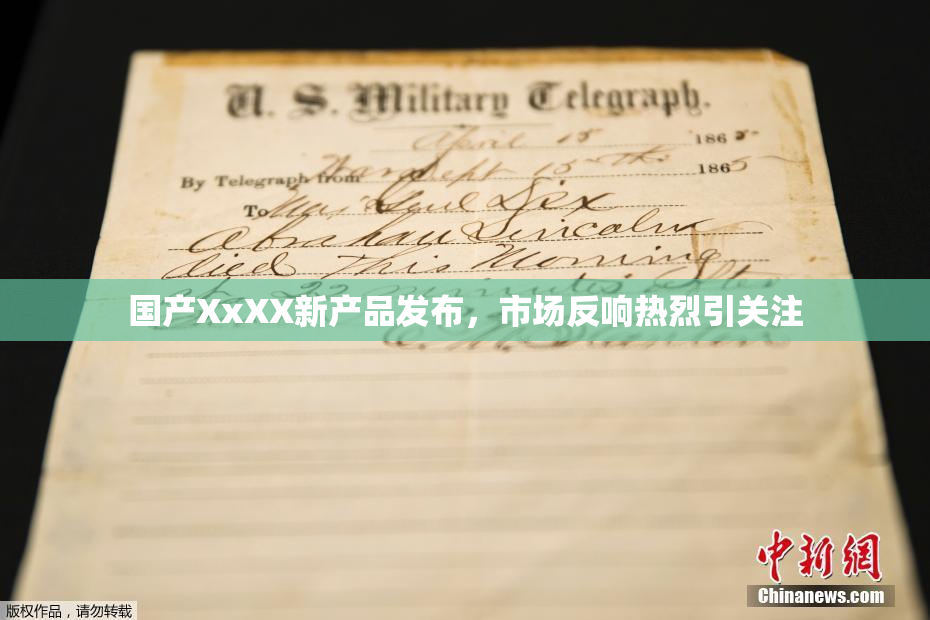 U. S. Military Telegraph.
April 15 1865
By Telegraph from War Dept 15th 1865
To Maj Genl Dix
Abraham Lincoln
died This Morning
at 22 minutes after
国产XxXX新产品发布，市场反响热烈引关注
中新网
Chinanews.com
版权作品，请勿转载